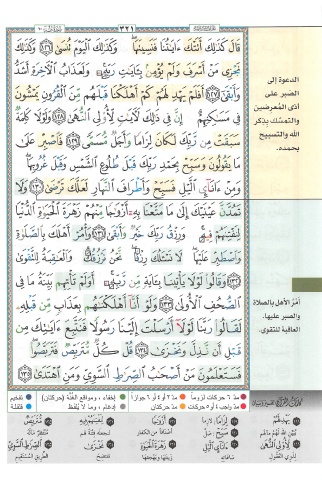 ٣٢١
قَالَ كَذَٰلِكَ أَتَتْكَ ءَايَٰتُنَا فَنَسِيتَهَا ۖ وَكَذَٰلِكَ ٱلْيَوْمَ تُنسَىٰ ١٢٦ وَكَذَٰلِكَ
نَجْزِى مَنْ أَسْرَفَ وَلَمْ يُؤْمِنۢ بِـَٔايَٰتِ رَبِّهِۦ ۚ وَلَعَذَابُ ٱلْـَٔاخِرَةِ أَشَدُّ
وَأَبْقَىٰٓ ١٢٧ أَفَلَمْ يَهْدِ لَهُمْ كَمْ أَهْلَكْنَا قَبْلَهُم مِّنَ ٱلْقُرُونِ يَمْشُونَ
فِى مَسَٰكِنِهِمْ ۗ إِنَّ فِى ذَٰلِكَ لَـَٔايَٰتٍ لِّأُو۟لِى ٱلنُّهَىٰ ١٢٨ وَلَوْلَا كَلِمَةٌ
سَبَقَتْ مِن رَّبِّكَ لَكَانَ لِزَامًا وَأَجَلٌ مُّسَمًّى ١٢٩ فَٱصْبِرْ عَلَىٰ
مَا يَقُولُونَ وَسَبِّحْ بِحَمْدِ رَبِّكَ قَبْلَ طُلُوعِ ٱلشَّمْسِ وَقَبْلَ غُرُوبِهَا ۖ
وَمِنْ ءَانَآئِ ٱلَّيْلِ فَسَبِّحْ وَأَطْرَافَ ٱلنَّهَارِ لَعَلَّكَ تَرْضَىٰ ١٣٠ وَلَا
تَمُدَّنَّ عَيْنَيْكَ إِلَىٰ مَا مَتَّعْنَا بِهِۦٓ أَزْوَٰجًا مِّنْهُمْ زَهْرَةَ ٱلْحَيَوٰةِ ٱلدُّنْيَا
لِنَفْتِنَهُمْ فِيهِ ۚ وَرِزْقُ رَبِّكَ خَيْرٌ وَأَبْقَىٰ ١٣١ وَأْمُرْ أَهْلَكَ بِٱلصَّلَوٰةِ
وَٱصْطَبِرْ عَلَيْهَا ۖ لَا نَسْـَٔلُكَ رِزْقًا ۖ نَّحْنُ نَرْزُقُكَ ۗ وَٱلْعَٰقِبَةُ لِلتَّقْوَىٰ
١٣٢ وَقَالُوا۟ لَوْلَا يَأْتِينَا بِـَٔايَةٍ مِّن رَّبِّهِۦٓ ۚ أَوَلَمْ تَأْتِهِم بَيِّنَةُ مَا فِى
ٱلصُّحُفِ ٱلْأُولَىٰ ١٣٣ وَلَوْ أَنَّآ أَهْلَكْنَٰهُم بِعَذَابٍ مِّن قَبْلِهِۦ
لَقَالُوا۟ رَبَّنَا لَوْلَآ أَرْسَلْتَ إِلَيْنَا رَسُولًا فَنَتَّبِعَ ءَايَٰتِكَ مِن
قَبْلِ أَن نَّذِلَّ وَنَخْزَىٰ ١٣٤ قُلْ كُلٌّ مُّتَرَبِّصٌ فَتَرَبَّصُوا۟ ۖ
فَسَتَعْلَمُونَ مَنْ أَصْحَٰبُ ٱلصِّرَٰطِ ٱلسَّوِىِّ وَمَنِ ٱهْتَدَىٰ ١٣٥
الدعوة إلى
الصبر على
أذى المعرضين
والتمسّك بذِكر
الله والتسبيح
بحمده.
أمرُ الأهل بالصلاة
والصبر عليها،
العاقبة للتقوى.
مدّ ٦ حركات لزوماً
مدّ ٢ أو ٤ أو ٦ جوازاً
إخفاء، ومواقع الغُنّة (حركتان)
تفخيم
مدّ واجب ٤ أو ٥ حركات
مدّ حركتان
إدغام، وما لا يُلفظ
قلقلة